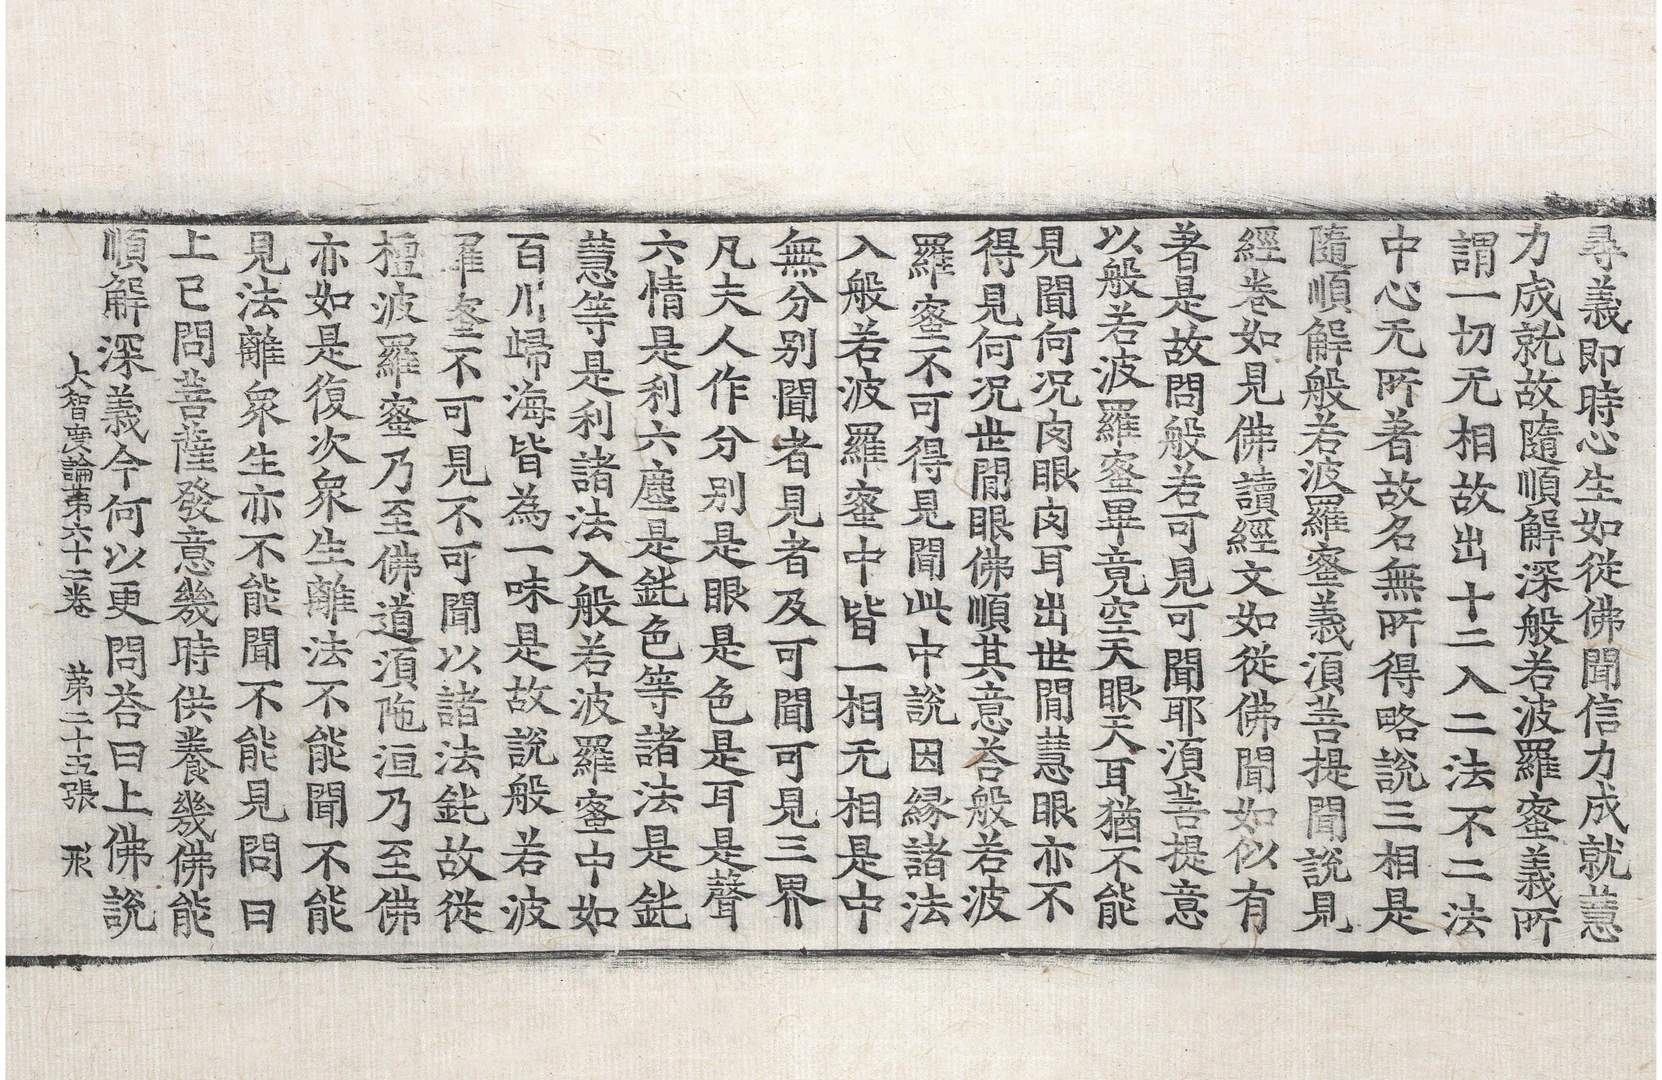 尋義即時心生如從佛聞信力成就慧
力成就故隨順解深般若波羅蜜義所
謂一切无相故出十二入二法不二法
中心无所著故名無所得略說三相是
隨順解般若波羅蜜義須菩提聞說見
經卷如見佛讀經文如從佛聞如似有
著是故問般若可見可聞耶須菩提意
以般若波羅蜜畢竟空天眼天耳猶不能
見聞何况肉眼肉耳出世閒慧眼亦不
得見何况世閒眼佛順其意荅般若波
羅蜜不可得見聞此中說因緣諸法
入般若波羅蜜中皆一相无相是中
無分別聞者見者及可聞可見三界
凡夫人作分別是眼是色是耳是聲
六情是利六塵是鈍色等諸法是鈍
慧等是利諸法入般若波羅蜜中如
百川歸海皆為一味是故說般若波
羅蜜不可見不可聞以諸法鈍故從
檀波羅蜜乃至佛道須陁洹乃至佛
亦如是復次衆生離法不能聞不能
見法離衆生亦不能聞不能見問曰
上已問菩薩發意幾時供養幾佛能
順解深義今何以更問荅曰上佛說
大智度論苐六十二卷 苐二十五張 形